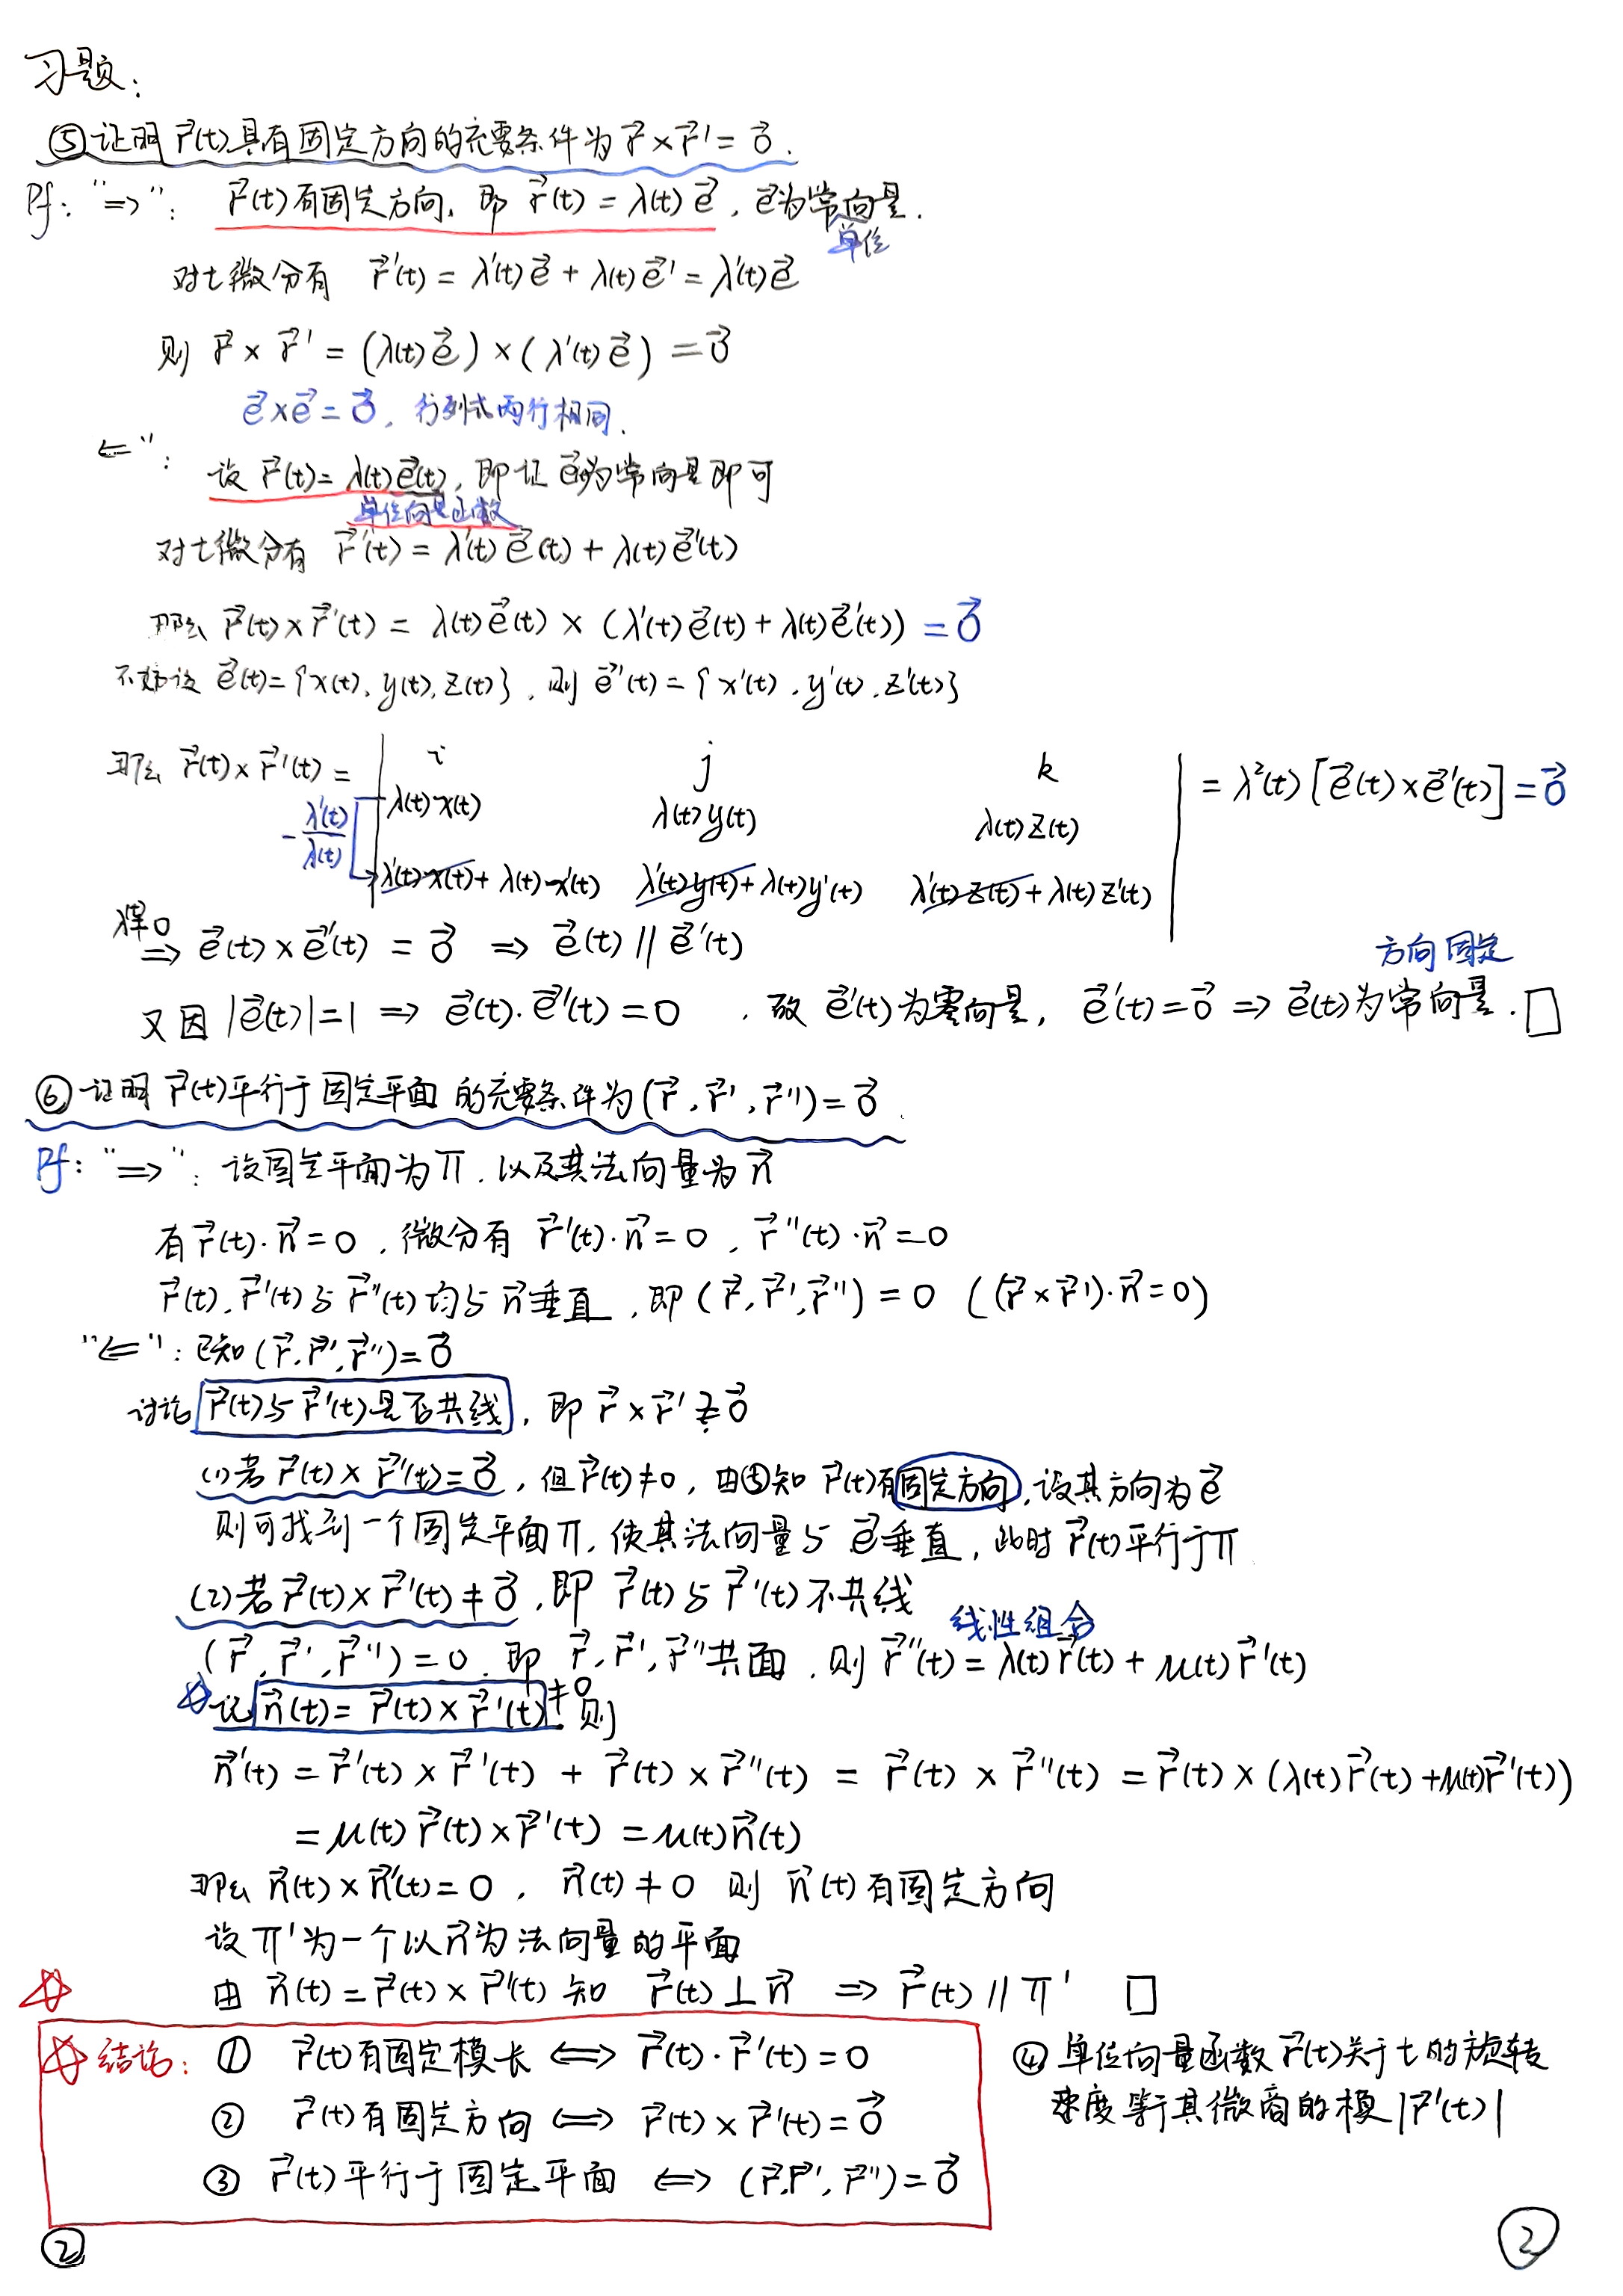 习题：
⑤证明 r⃗(t)具有固定方向的充要条件为 r⃗×r⃗'=0⃗.
Pf: "⇒": r⃗(t)有固定方向，即 r⃗(t)=λ(t)e⃗, e⃗为常向量.
单位
对t微分有 r⃗'(t)=λ'(t)e⃗+λ(t)e⃗'=λ'(t)e⃗
则 r⃗×r⃗'=(λ(t)e⃗)×(λ'(t)e⃗)=0⃗
e⃗×e⃗=0⃗, 行列式两行相同.
⇐": 设 r⃗(t)=λ(t)e⃗(t), 即证 e⃗为常向量即可
单位向量函数
对t微分有 r⃗'(t)=λ'(t)e⃗(t)+λ(t)e⃗'(t)
那么 r⃗(t)×r⃗'(t)=λ(t)e⃗(t)×(λ'(t)e⃗(t)+λ(t)e⃗'(t))=0⃗
不妨设 e⃗(t)={x(t), y(t), z(t)}, 则 e⃗'(t)={x'(t), y'(t), z'(t)}
那么 r⃗(t)×r⃗'(t)= | i j k |
λ(t)x(t) λ(t)y(t) λ(t)z(t) =λ²(t)[e⃗(t)×e⃗'(t)]=0⃗
-λ'(t)/λ(t)
λ'(t)x(t)+λ(t)x'(t) λ'(t)y(t)+λ(t)y'(t) λ'(t)z(t)+λ(t)z'(t)
λ≠0
⇒ e⃗(t)×e⃗'(t)=0⃗ ⇒ e⃗(t)∥e⃗'(t)
方向固定
又因 |e⃗(t)|=1 ⇒ e⃗(t)·e⃗'(t)=0, 故 e⃗'(t)为零向量, e⃗'(t)=0⃗ ⇒ e⃗(t)为常向量. □
⑥证明 r⃗(t)平行于固定平面的充要条件为(r⃗, r⃗', r⃗'')=0⃗.
Pf: "⇒": 设固定平面为π, 以及其法向量为n⃗
有 r⃗(t)·n⃗=0, 微分有 r⃗'(t)·n⃗=0, r⃗''(t)·n⃗=0
r⃗(t), r⃗'(t)与r⃗''(t)均与n⃗垂直, 即(r⃗, r⃗', r⃗'')=0 ((r⃗×r⃗')·n⃗=0)
"⇐": 已知(r⃗, r⃗', r⃗'')=0⃗
讨论 r⃗(t)与r⃗'(t)是否共线, 即 r⃗×r⃗' ≟ 0⃗
(1)若 r⃗(t)×r⃗'(t)=0⃗, 但r⃗(t)≠0, 由⑤知 r⃗(t)有固定方向, 设其方向为e⃗
则可找到一个固定平面π, 使其法向量与e⃗垂直, 此时r⃗(t)平行于π
(2)若 r⃗(t)×r⃗'(t)≠0⃗, 即 r⃗(t)与r⃗'(t)不共线
线性组合
(r⃗, r⃗', r⃗'')=0, 即 r⃗, r⃗', r⃗''共面, 则 r⃗''(t)=λ(t)r⃗(t)+μ(t)r⃗'(t)
☆记 n⃗(t)=r⃗(t)×r⃗'(t)≠0 则
n⃗'(t)=r⃗'(t)×r⃗'(t)+r⃗(t)×r⃗''(t)=r⃗(t)×r⃗''(t)=r⃗(t)×(λ(t)r⃗(t)+μ(t)r⃗'(t))
=μ(t)r⃗(t)×r⃗'(t)=μ(t)n⃗(t)
那么 n⃗(t)×n⃗'(t)=0, n⃗(t)≠0 则 n⃗(t)有固定方向
设π'为一个以n⃗为法向量的平面
☆ 由 n⃗(t)=r⃗(t)×r⃗'(t) 知 r⃗(t)⊥n⃗ ⇒ r⃗(t)∥π' □
☆结论: ① r⃗(t)有固定模长 ⇔ r⃗(t)·r⃗'(t)=0
② r⃗(t)有固定方向 ⇔ r⃗(t)×r⃗'(t)=0⃗
③ r⃗(t)平行于固定平面 ⇔ (r⃗, r⃗', r⃗'')=0⃗
④ 单位向量函数r⃗(t)关于t的旋转
速度等于其微商的模|r⃗'(t)|
②
②